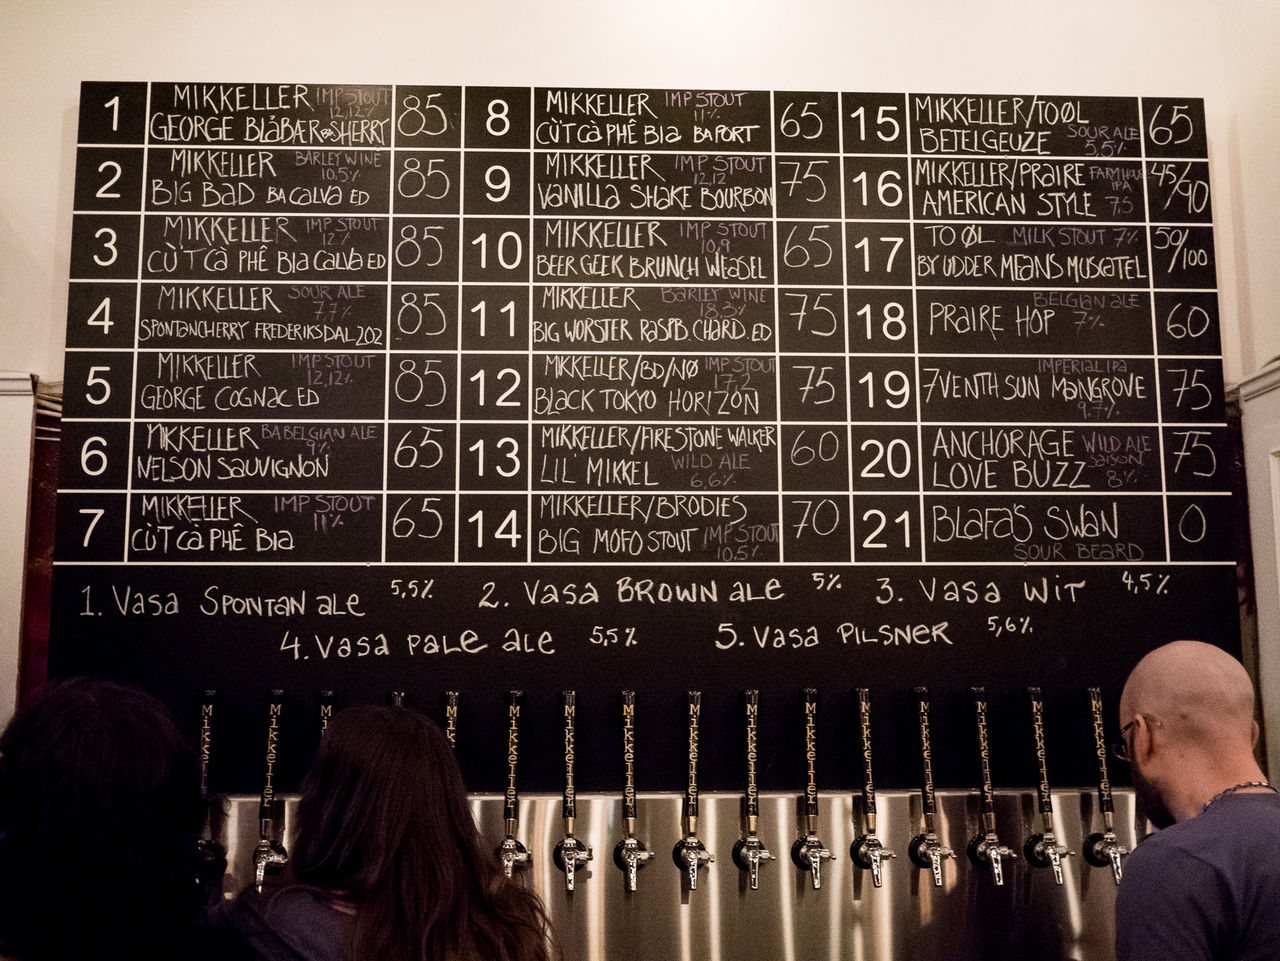 1 MIKKELLER IMP STOUT 12,12% 85
GEORGE BLÅBÆR BA SHERRY
2 MIKKELLER BARLEY WINE 10.5% 85
BIG BAD BA CALVA ED
3 MIKKELLER IMP STOUT 12% 85
CÙT CÀ PHÊ BIA CALVA ED
4 MIKKELLER SOUR ALE 7.7% 85
SPONTANCHERRY FREDERIKSDAL 202
5 MIKKELLER IMP STOUT 12,12% 85
GEORGE COGNAC ED
6 MIKKELLER BA BELGIAN ALE 9% 65
NELSON SAUVIGNON
7 MIKKELLER IMP STOUT 11% 65
CÙT CÀ PHÊ BIA
8 MIKKELLER IMP STOUT 11% 65
CÙT CÀ PHÊ BIA BA PORT
9 MIKKELLER IMP STOUT 12,12 75
VANILLA SHAKE BOURBON
10 MIKKELLER IMP STOUT 10,9 65
BEER GEEK BRUNCH WEASEL
11 MIKKELLER BARLEY WINE 18,3% 75
BIG WORSTER RASPB. CHARD. ED
12 MIKKELLER/BD/NØ IMP STOUT 17,2 75
BLACK TOKYO HORIZON
13 MIKKELLER/FIRESTONE WALKER 60
LIL' MIKKEL WILD ALE 6,6%
14 MIKKELLER/BRODIES 70
BIG MOFO STOUT IMP STOUT 10.5%
15 MIKKELLER/TO ØL 65
BETELGEUZE SOUR ALE 5,5%
16 MIKKELLER/PRAIRE FARMHOUSE IPA 45/90
AMERICAN STYLE 7,5
17 TO ØL MILK STOUT 7% 50/100
BY UDDER MEANS MUSCATEL
18 PRAIRE HOP BELGIAN ALE 7% 60
19 7VENTH SUN MANGROVE IMPERIAL IPA 9.7% 75
20 ANCHORAGE WILD ALE SAISON 8% 75
LOVE BUZZ
21 BLAFA'S SWAN 0
SOUR BEARD
1. Vasa SPONTAN ALE 5,5% 2. Vasa BROWN ALE 5% 3. Vasa WIT 4,5%
4. Vasa PALE ALE 5,5% 5. Vasa PILSNER 5,6%
Mikkeller Mikkeller Mikkeller Mikkeller Mikkeller Mikkeller Mikkeller Mikkeller Mikkeller Mikkeller Mikkeller